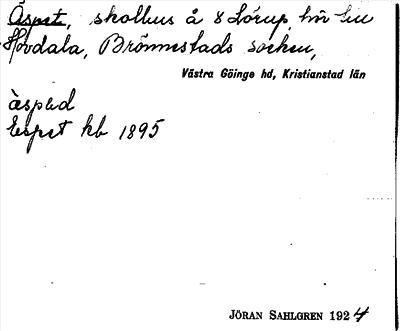 Äspet, skolhus å 8 Lörup, hör till
Hovdala, Brönnestads socken,
Västra Göinge hd, Kristianstad län
äspəd
Espet kb 1895
JÖRAN SAHLGREN 1924